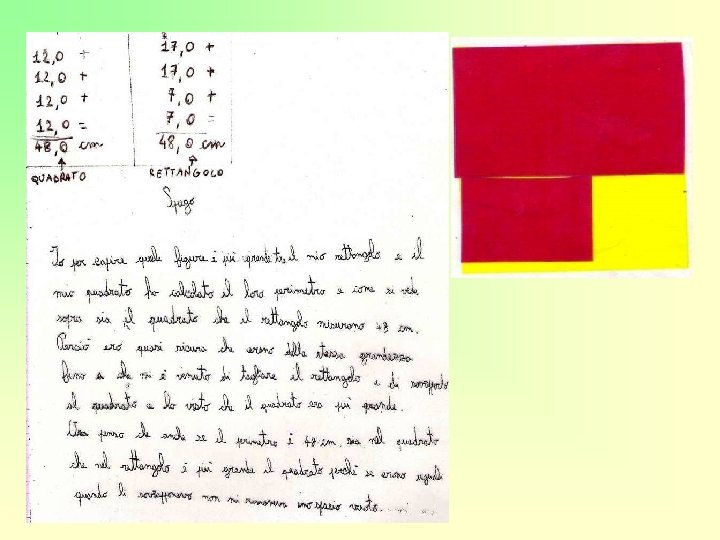 12,0 +
12,0 +
12,0 +
12,0 =
48,0 cm
QUADRATO
17,0 +
17,0 +
7,0 +
7,0 =
48,0 cm
RETTANGOLO
Spiego
Io per capire quale figura è più grande tra il mio rettangolo e il
mio quadrato ho calcolato il loro perimetro e come si vede
sopra sia il quadrato che il rettangolo misurano 48 cm.
Perciò ero quasi sicura che erano della stessa grandezza
fino a che mi è venuto di tagliare il rettangolo e di sovrapporlo
al quadrato e ho visto che il quadrato era più grande.
Ora penso che anche se il perimetro è 48 cm, sia nel quadrato
che nel rettangolo è più grande il quadrato perché se erano uguali
quando li sovrapponevo non mi rimaneva uno spazio vuoto.